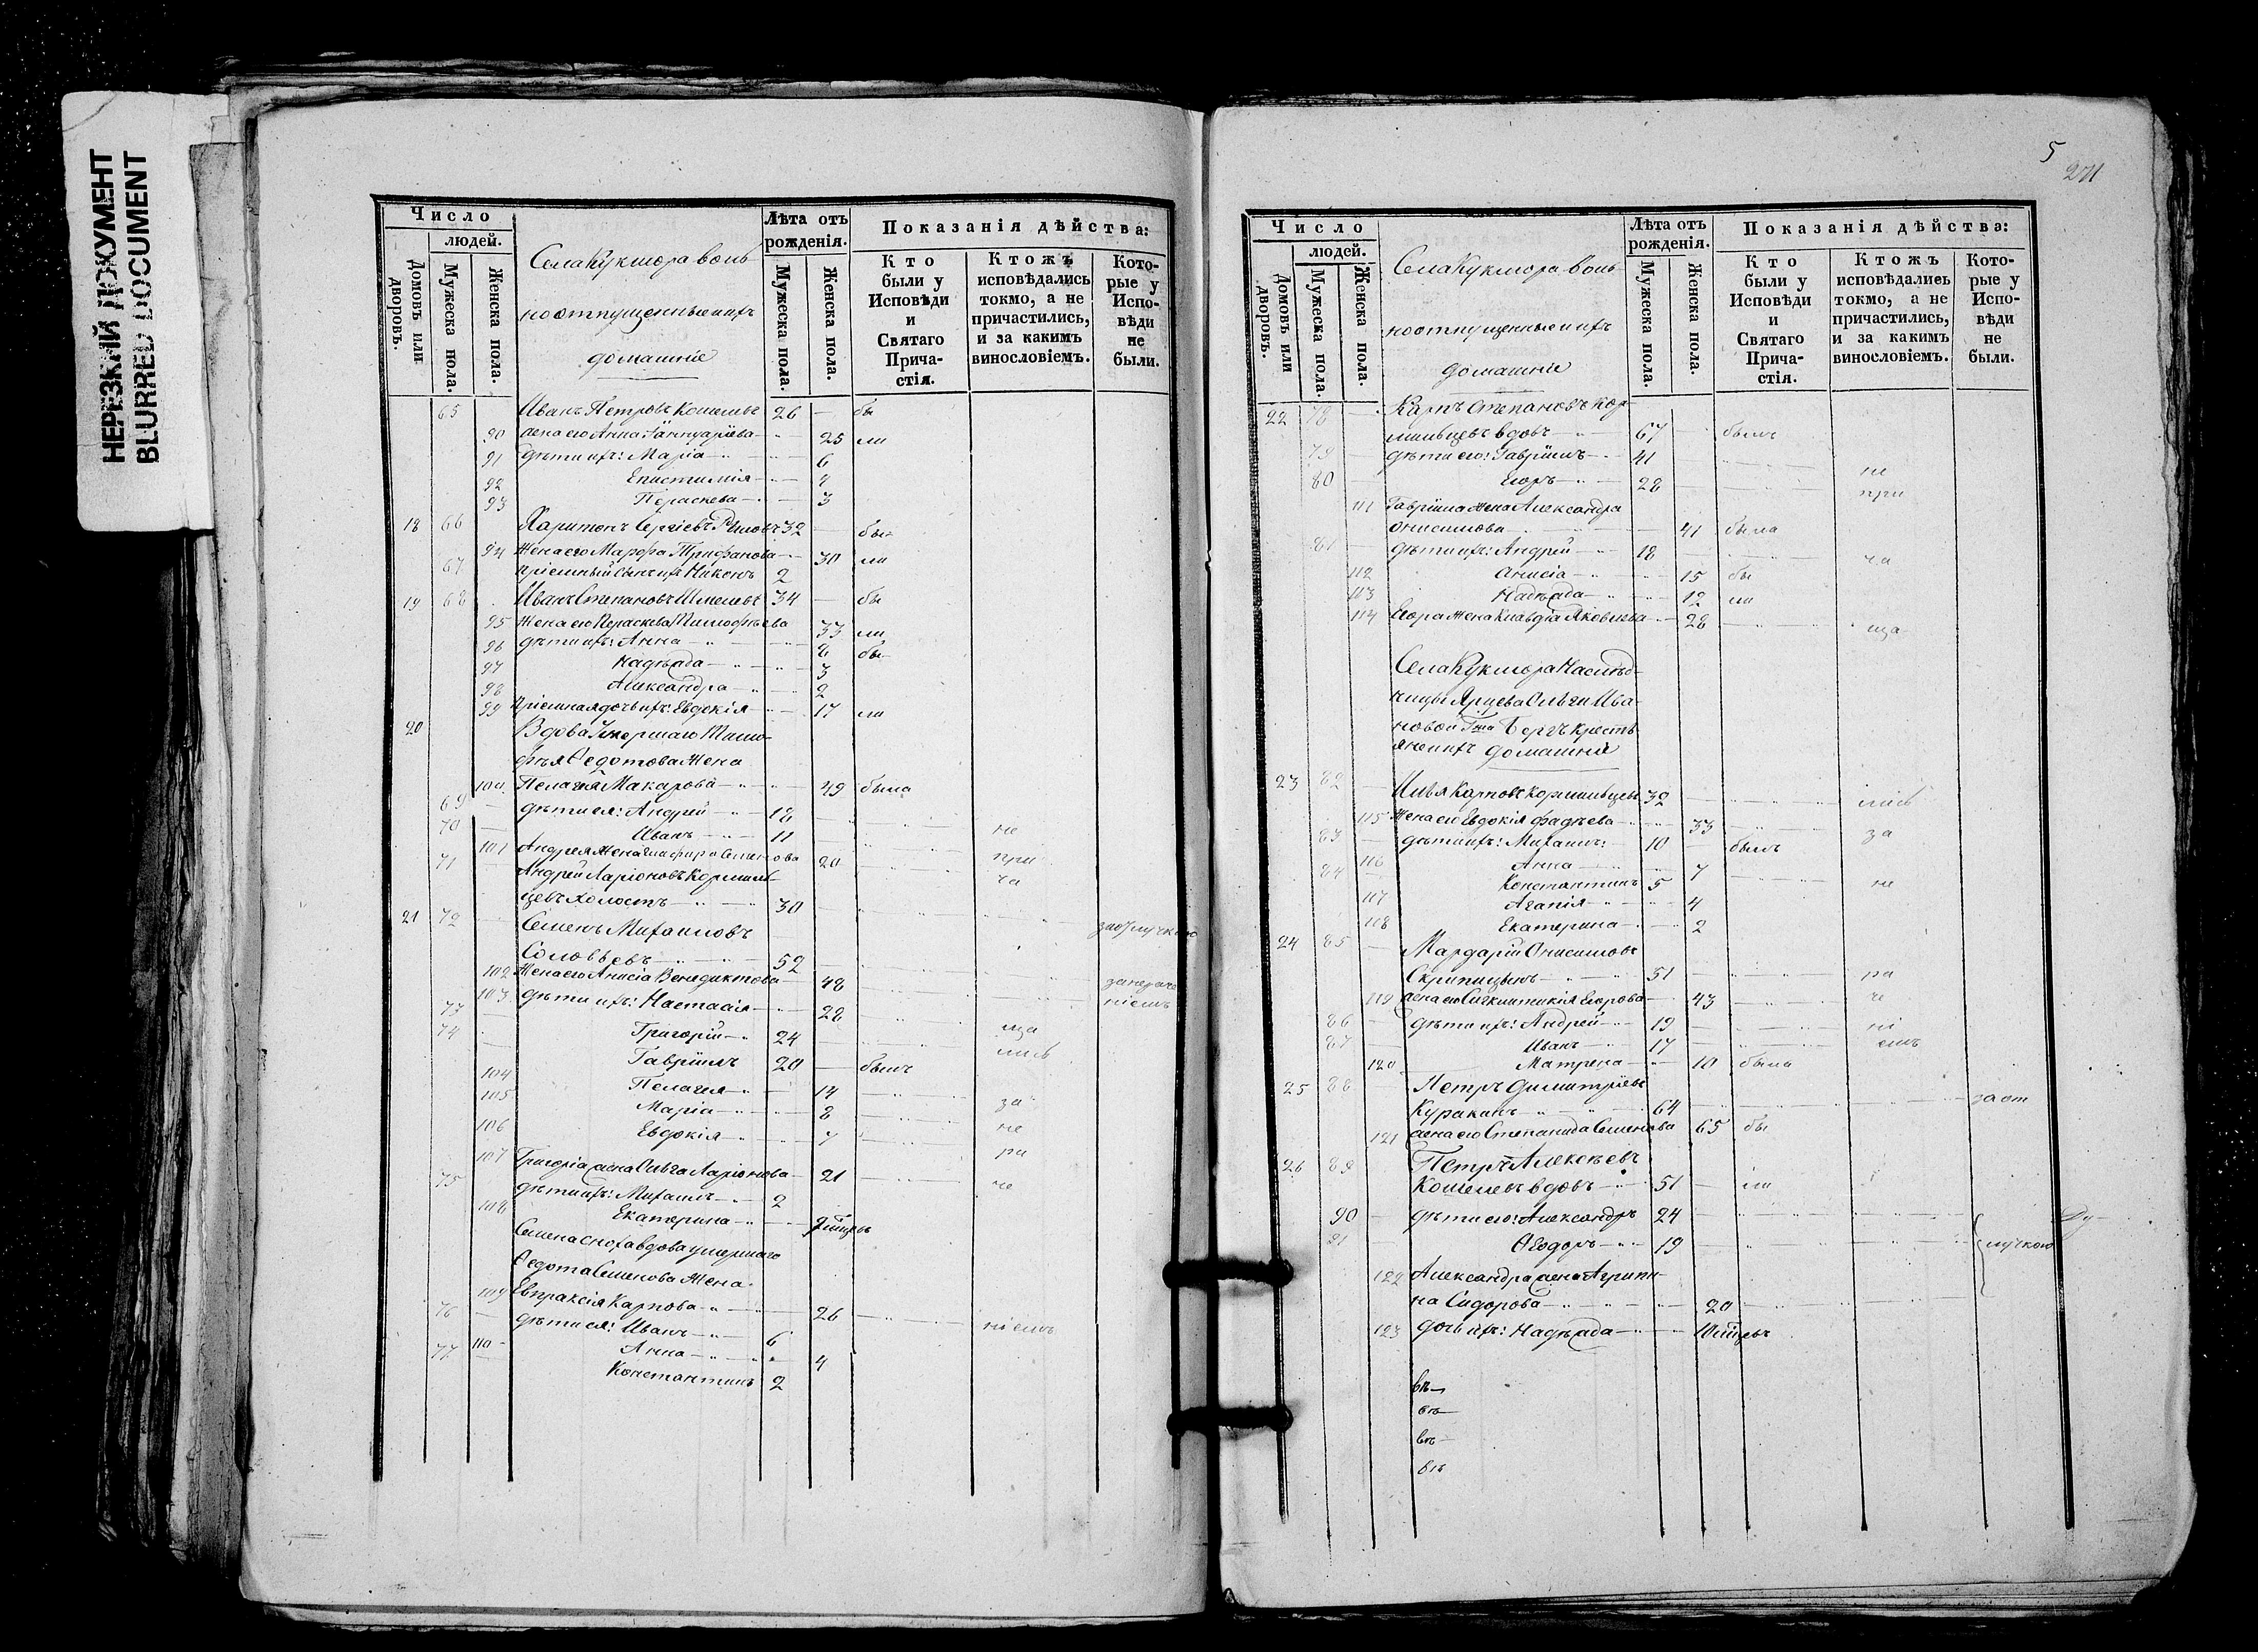 НЕРЕЗКИЙ ДОКУМЕНТ
BLURRED DOCUMENT
Число
людей.
Домовъ или дворовъ.
Мужеска пола.
Женска пола.
Села Кукмора воль
но отпущенные и ихъ
домашніе
Лѣта отъ рожденія.
Мужеска пола.
Женска пола.
Показанія дѣйства:
Кто были у Исповѣди и Святаго Причастія.
Ктожъ исповѣдались токмо, а не причастились, и за какимъ винословіемъ.
Которые у Исповѣди не были.
65 Иванъ Петровъ Кошелевъ 26 — бы
90 жена его Анна Іаннуаріева — 25 ли
91 дѣти ихъ: Марія — 6
92 Епистимія — 4
93 Параскева — 3
18 66 Харитонъ Сергіевъ 32 — бы-
94 Жена его Марфа Трифанова — 30 ли
67 пріемный сынъ ихъ Никонъ 2
19 68 Иванъ Степановъ Шмелевъ 34 — бы
95 Жена его Параскева Тимофѣева 33 ли
96 дѣти ихъ: Анна — 8 бы-
97 Надѣжда — 3
98 Александра — 2
99 пріемная дочь ихъ: Евдокія — 17 ли
20 Вдова Умершаго Тимо-
фѣя Ѳедотова Жена
100 Пелагея Макарова — 49 была
69 — дѣти ея: Андрей — 18
70 — Иванъ — 11 не
101 Андрея Жена Глафира Семенова 20 при
71 Андрей Ларіоновъ Кормиль- ча
цевъ холостъ — 30
21 72 Семенъ Михаиловъ за отлучкою
Соловьевъ — 52
102 Жена его Анисія Венедиктова — 48 за нераче
103 дѣти ихъ: Настасія — 28 ніемъ
73 Григорій — 24 ща
74 Гавріилъ 20 — былъ лись
104 Пелагея — 14
105 Марія — 8 за
106 Евдокія — 7 не
107 Григорія жена Ольга Ларіонова — 21 ра
75 дѣти ихъ: Михаилъ — 2 че
108 Екатерина —
Семена сноха вдова умершаго
Ѳедота Семенова Жена
109 Евпраксія Карпова — 26
76 — дѣти ея: Иванъ — 6 ніемъ
110 — Анна — 4
77 Константинъ 2
5
271
Число
людей.
Домовъ или дворовъ.
Мужеска пола.
Женска пола.
Села Кукмора воль
но отпущенные и ихъ
домашніе
Лѣта отъ рожденія.
Мужеска пола.
Женска пола.
Показанія дѣйства:
Кто были у Исповѣди и Святаго Причастія.
Ктожъ исповѣдались токмо, а не причастились, и за какимъ винословіемъ.
Которые у Исповѣди не были.
22 78 — Карпъ Степановъ Кор-
мильцевъ вдовъ — 67 былъ
79 — дѣти его: Гавріилъ — 41 не
80 Егоръ — 28 при
111 Гавріила Жена Александра
Онисимова — 41 была
81 дѣти ихъ: Андрей — 18 ча
112 Анисія — 15 бы
113 Надѣжда — 12 ли
114 Егора Жена Клавдія Яковлева — 28 ща
Села Кукмора Наслѣд-
ницы Ярцева Ольги Ива-
новой Гжа Бергъ кресть
яне и ихъ домашніе
23 82 — Илья Карповъ Кормильцевъ 32 лись
115 Жена его Евдокія Фадѣева — 33 за
83 — дѣти ихъ: Михаилъ: 10 — былъ
116 Анна — 7
84 — Константинъ 5 не
117 Агапія — 4
118 Екатерина — 2
24 85 — Мардарій Онисимовъ
Скрипицынъ — 51 ра
119 жена его Сигклитикія Егорова — 43 че
86 — дѣти ихъ: Андрей — 19 ні
87 — Иванъ — 17 емъ
120 Матрена — 10 была
25 88 Петръ Димитріевъ
Куракинъ — 64 за от
121 жена его Степанида Семенова 65 бы
26 89 Петръ Алексѣевъ
Кошелевъ вдовъ — 51 — ли
90 — дѣти его: Александръ 24
91 Ѳеодоръ — 19 лучкою
122 Александра жена Агрипи-
на Сидорова — 20
123 дочь ихъ: Надѣжда —